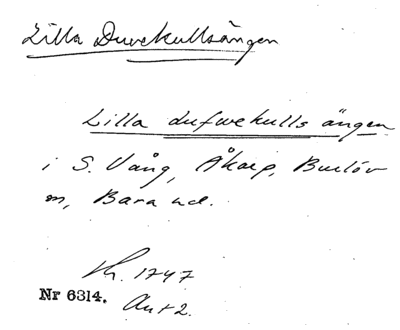 Lilla Duvekullsängen
Lilla dufwekulls ängen
i S. Vång, Åkarp, Burlöv
sn, Bara hd.
1747
Nr 6314.